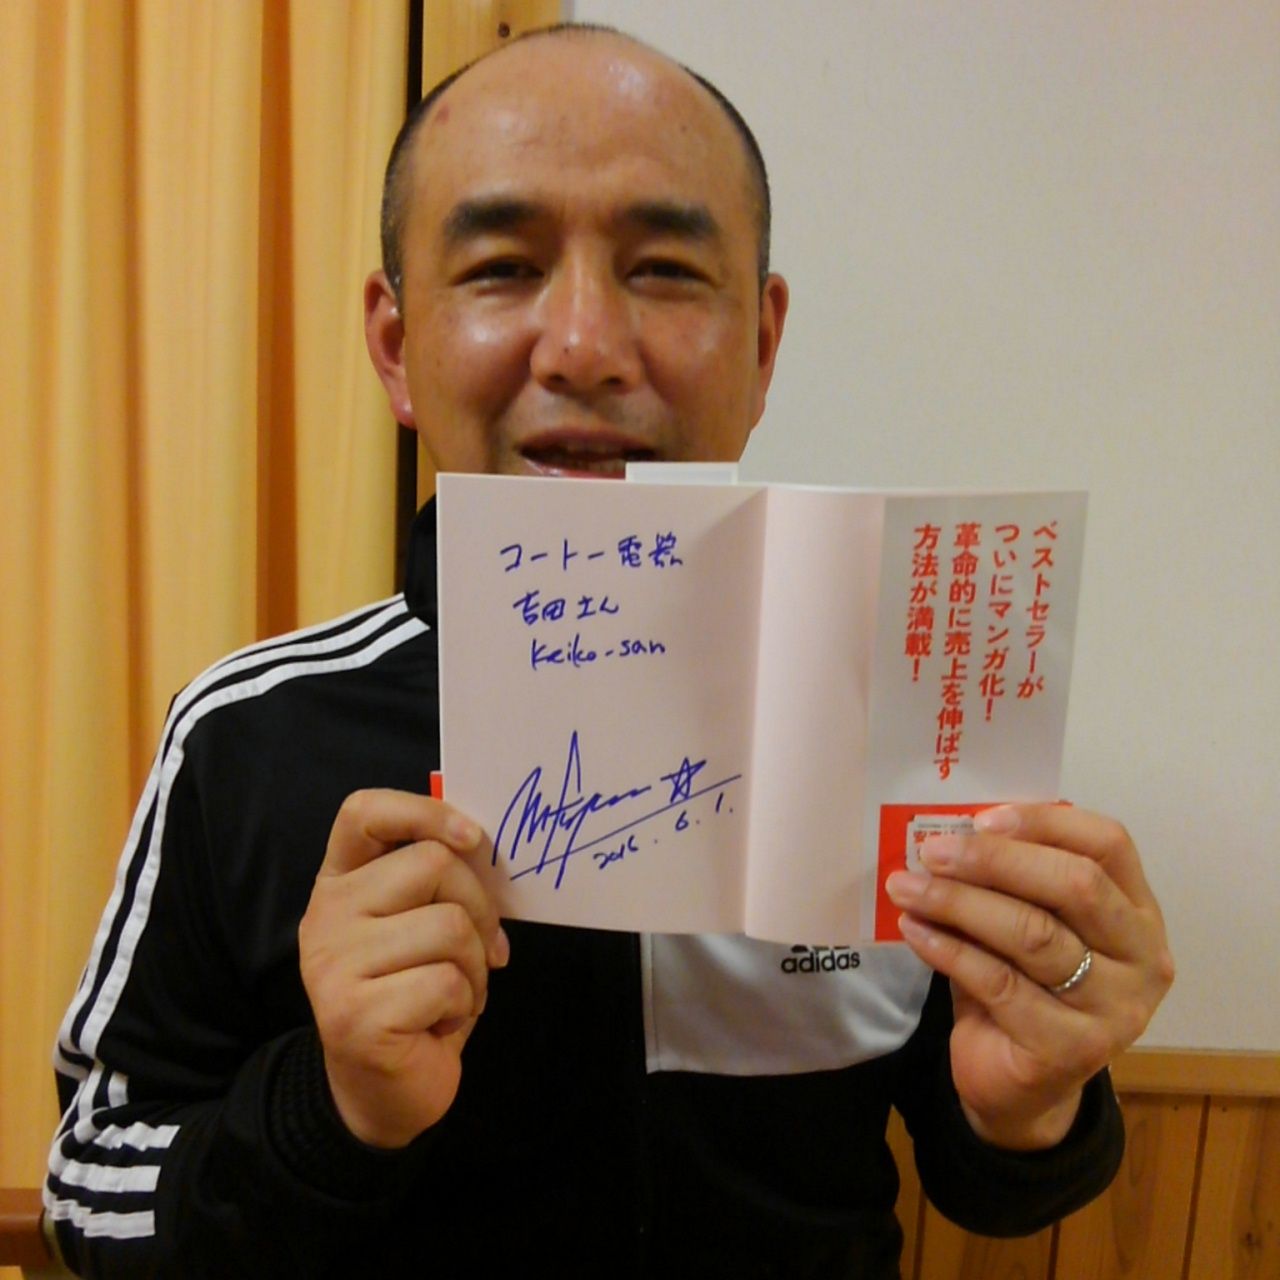 コートー電器
吉田さん
Keiko-san
2016.6.1.
ベストセラーが
ついにマンガ化！
革命的に売上を伸ばす
方法が満載！
adidas